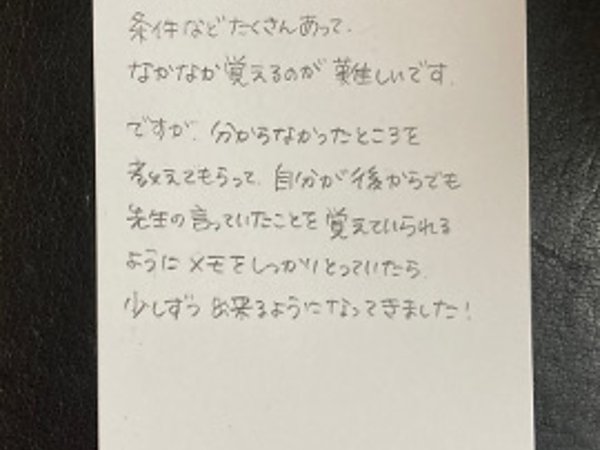 条件などたくさんあって、
なかなか覚えるのが難しいです。
ですが、分からなかったところを
教えてもらって、自分が後からでも
先生の言っていたことを覚えていられる
ようにメモをしっかりとっていたら、
少しずつ出来るようになってきました!